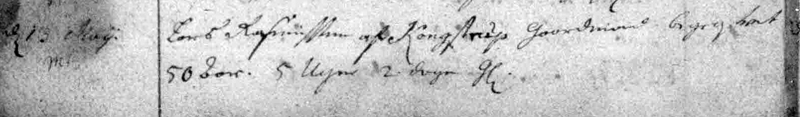 d 13 Maij. Lars Rasmussen af Kongstrup Gaardmand begravet
50 aar. 5 Uger 2 dage Gl.